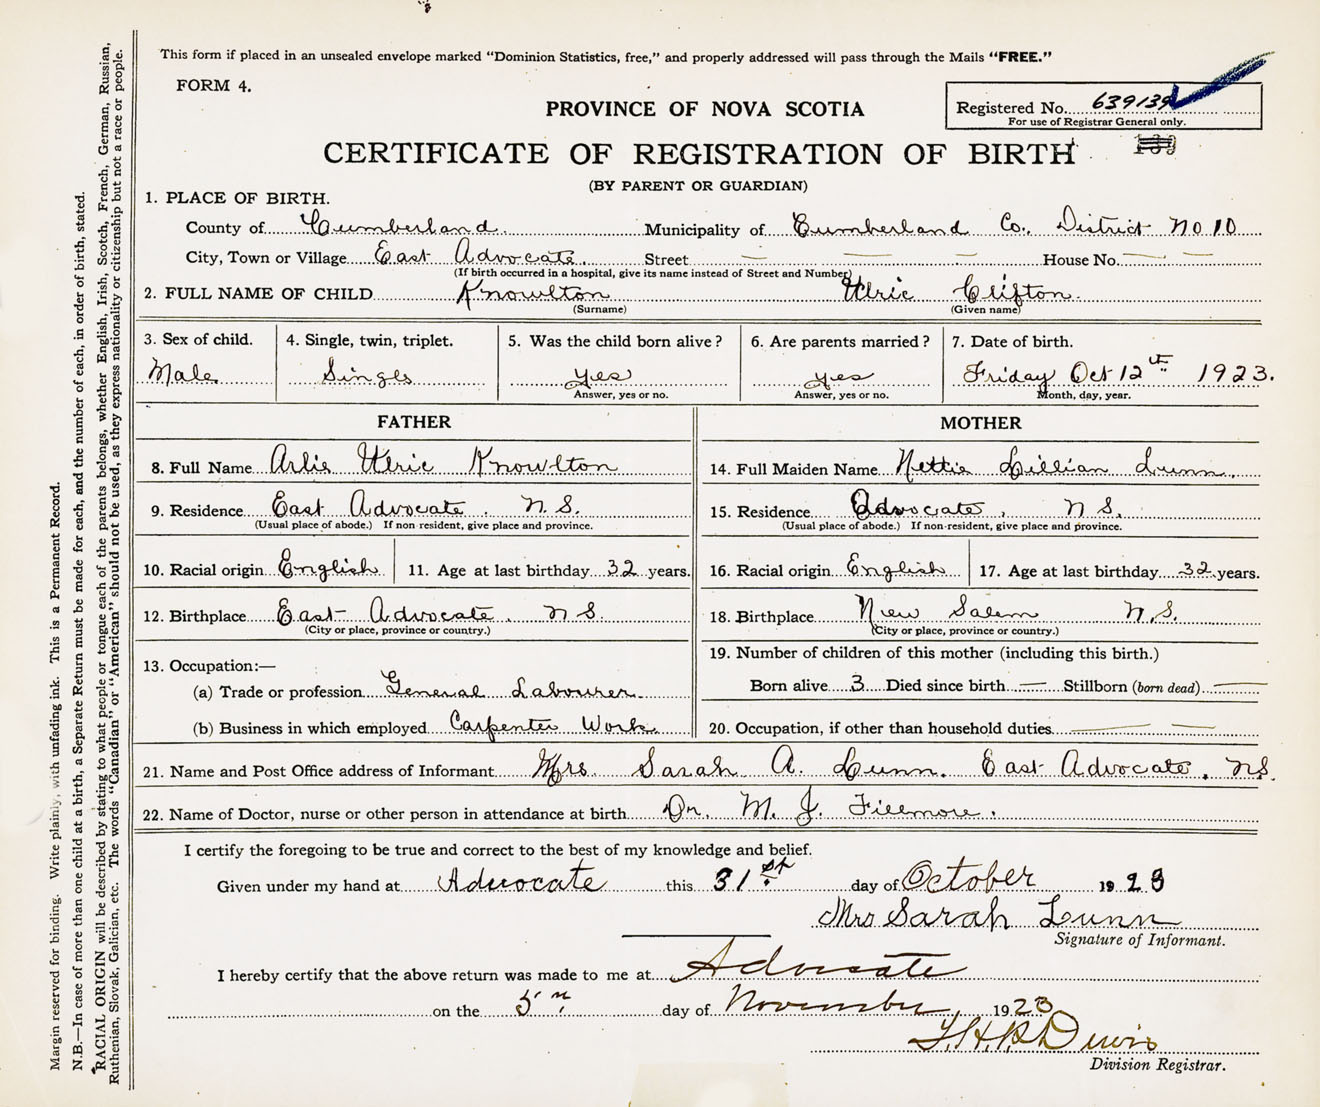 This form if placed in an unsealed envelope marked “Dominion Statistics, free,” and properly addressed will pass through the Mails “FREE.”
FORM 4.
Registered No. 639139
For use of Registrar General only.
PROVINCE OF NOVA SCOTIA
CERTIFICATE OF REGISTRATION OF BIRTH
(BY PARENT OR GUARDIAN)
1. PLACE OF BIRTH.
County of Cumberland. Municipality of Cumberland Co., District No 10
City, Town or Village East Advocate. Street — — — House No. — —
(If birth occurred in a hospital, give its name instead of Street and Number)
2. FULL NAME OF CHILD Knowlton Ulric Clifton.
(Surname) (Given name)
3. Sex of child. 4. Single, twin, triplet. 5. Was the child born alive? 6. Are parents married? 7. Date of birth.
Male Single yes yes Friday Oct 12th 1923.
Answer, yes or no. Answer, yes or no. Month, day, year.
FATHER MOTHER
8. Full Name Arlie Ulric Knowlton 14. Full Maiden Name Nettie Lillian Lunn.
9. Residence East Advocate. N.S. 15. Residence Advocate, N S.
(Usual place of abode.) If non-resident, give place and province. (Usual place of abode.) If non-resident, give place and province.
10. Racial origin English 11. Age at last birthday 32 years. 16. Racial origin English 17. Age at last birthday 32 years.
12. Birthplace East Advocate. N S. 18. Birthplace New Salem N.S.
(City or place, province or country.) (City or place, province or country.)
13. Occupation:— 19. Number of children of this mother (including this birth.)
(a) Trade or profession General Labourer. Born alive 3 Died since birth — Stillborn (born dead) —
(b) Business in which employed Carpenter Work. 20. Occupation, if other than household duties — —
21. Name and Post Office address of Informant Mrs. Sarah A. Lunn. East Advocate, NS.
22. Name of Doctor, nurse or other person in attendance at birth Dr. M. J. Fillmore.
I certify the foregoing to be true and correct to the best of my knowledge and belief.
Given under my hand at Advocate this 31st day of October 1923
Mrs Sarah Lunn
Signature of Informant.
I hereby certify that the above return was made to me at Advocate
on the 5th day of November 1923
Division Registrar.
Margin reserved for binding. Write plainly, with unfading ink. This is a Permanent Record.
N.B.—In case of more than one child at a birth, a Separate Return must be made for each, and the number of each, in order of birth, stated.
RACIAL ORIGIN will be described by stating to what people or tongue each of the parents belongs, whether English, Irish, Scotch, French, German, Russian,
Ruthenian, Slovak, Galician, etc. The words “Canadian” or “American” should not be used, as they express nationality or citizenship but not a race or people.